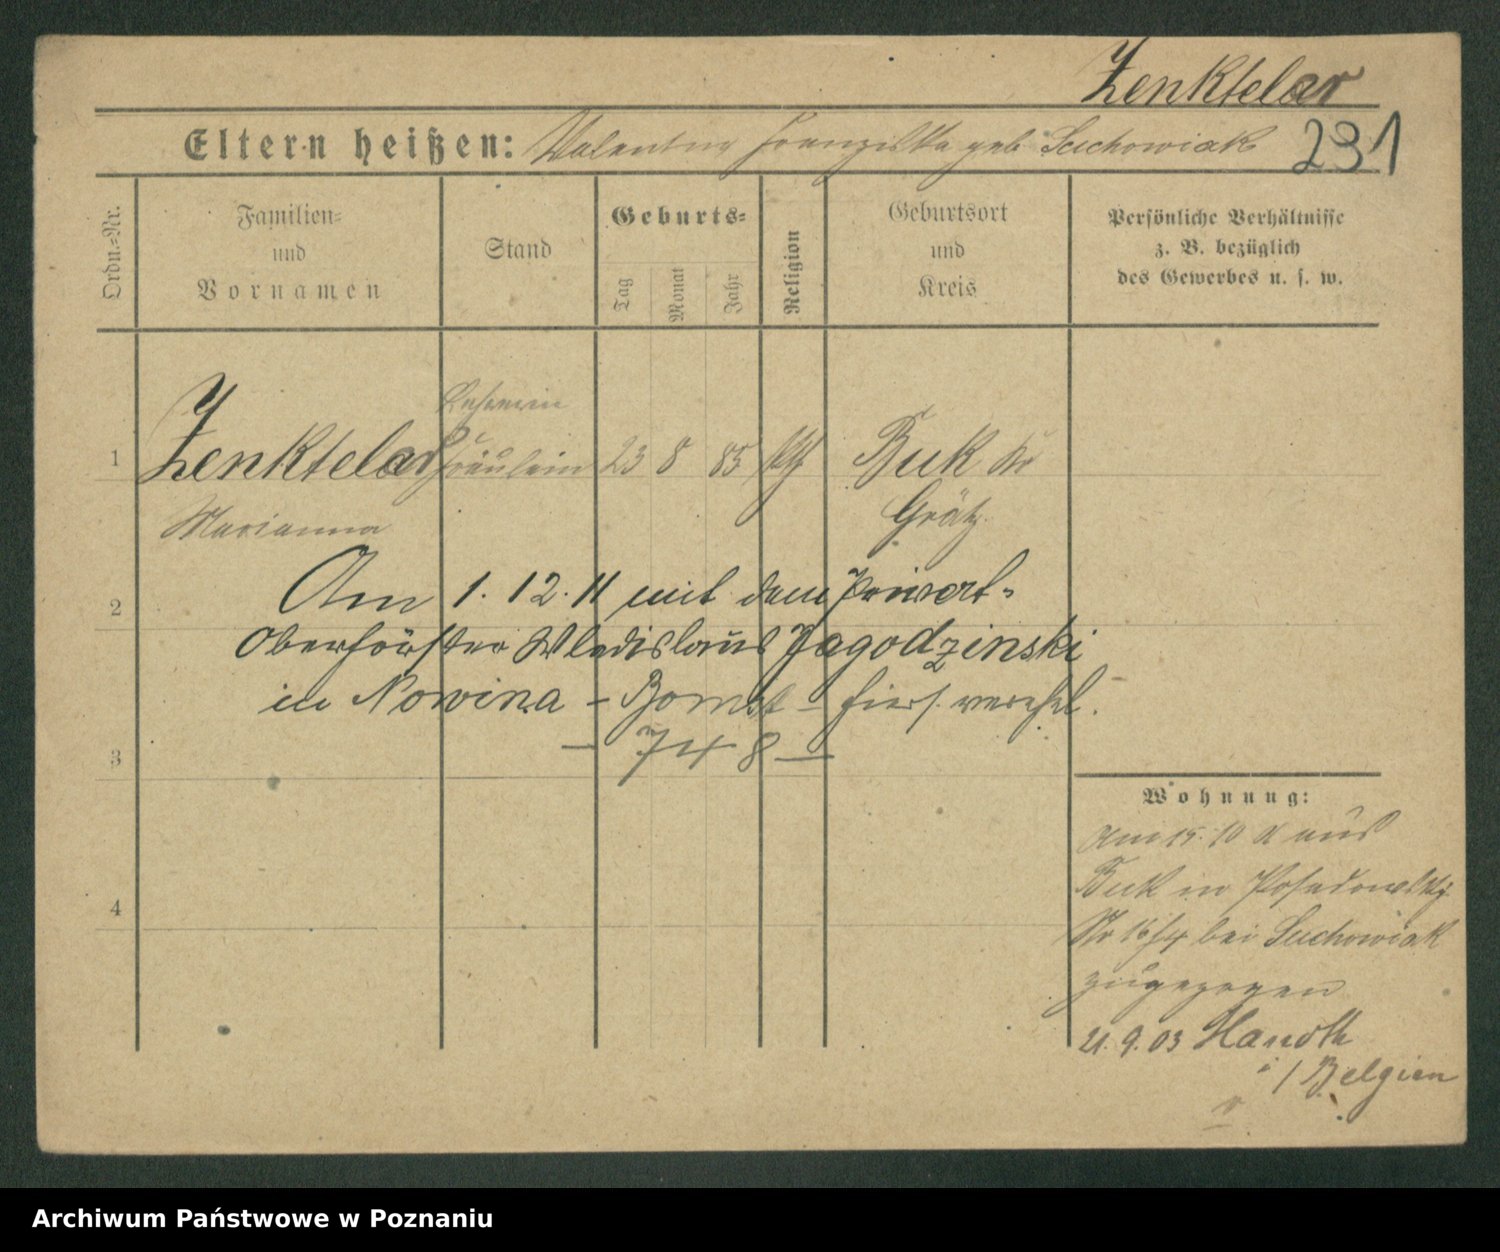 Zenktelar
Eltern heißen: Valentin Franziska geb Suchowiak 231
Ordn.-Nr.
Familien-
und
Vornamen
Stand
Geburts-
Tag
Monat
Jahr
Religion
Geburtsort
und
Kreis
Persönliche Verhältnisse
z. B. bezüglich
des Gewerbes u. s. w.
Lehrerin
1 Zenktelar Fräulein 23 8 85 Buk Kr
Grätz
Marianna
2 Am 1. 12. 11 mit dem Privat-
Oberförster Wladislaus Jagodzinski
in Nowina - Bomst - hiers. verehel.
3 - 748 -
Wohnung:
Am 15. 10 aus
Buk in Posadowskystr
Nr 16/4 bei Suchowiak
zugezogen
4
21. 9. 03
i/Belgien
Archiwum Państwowe w Poznaniu